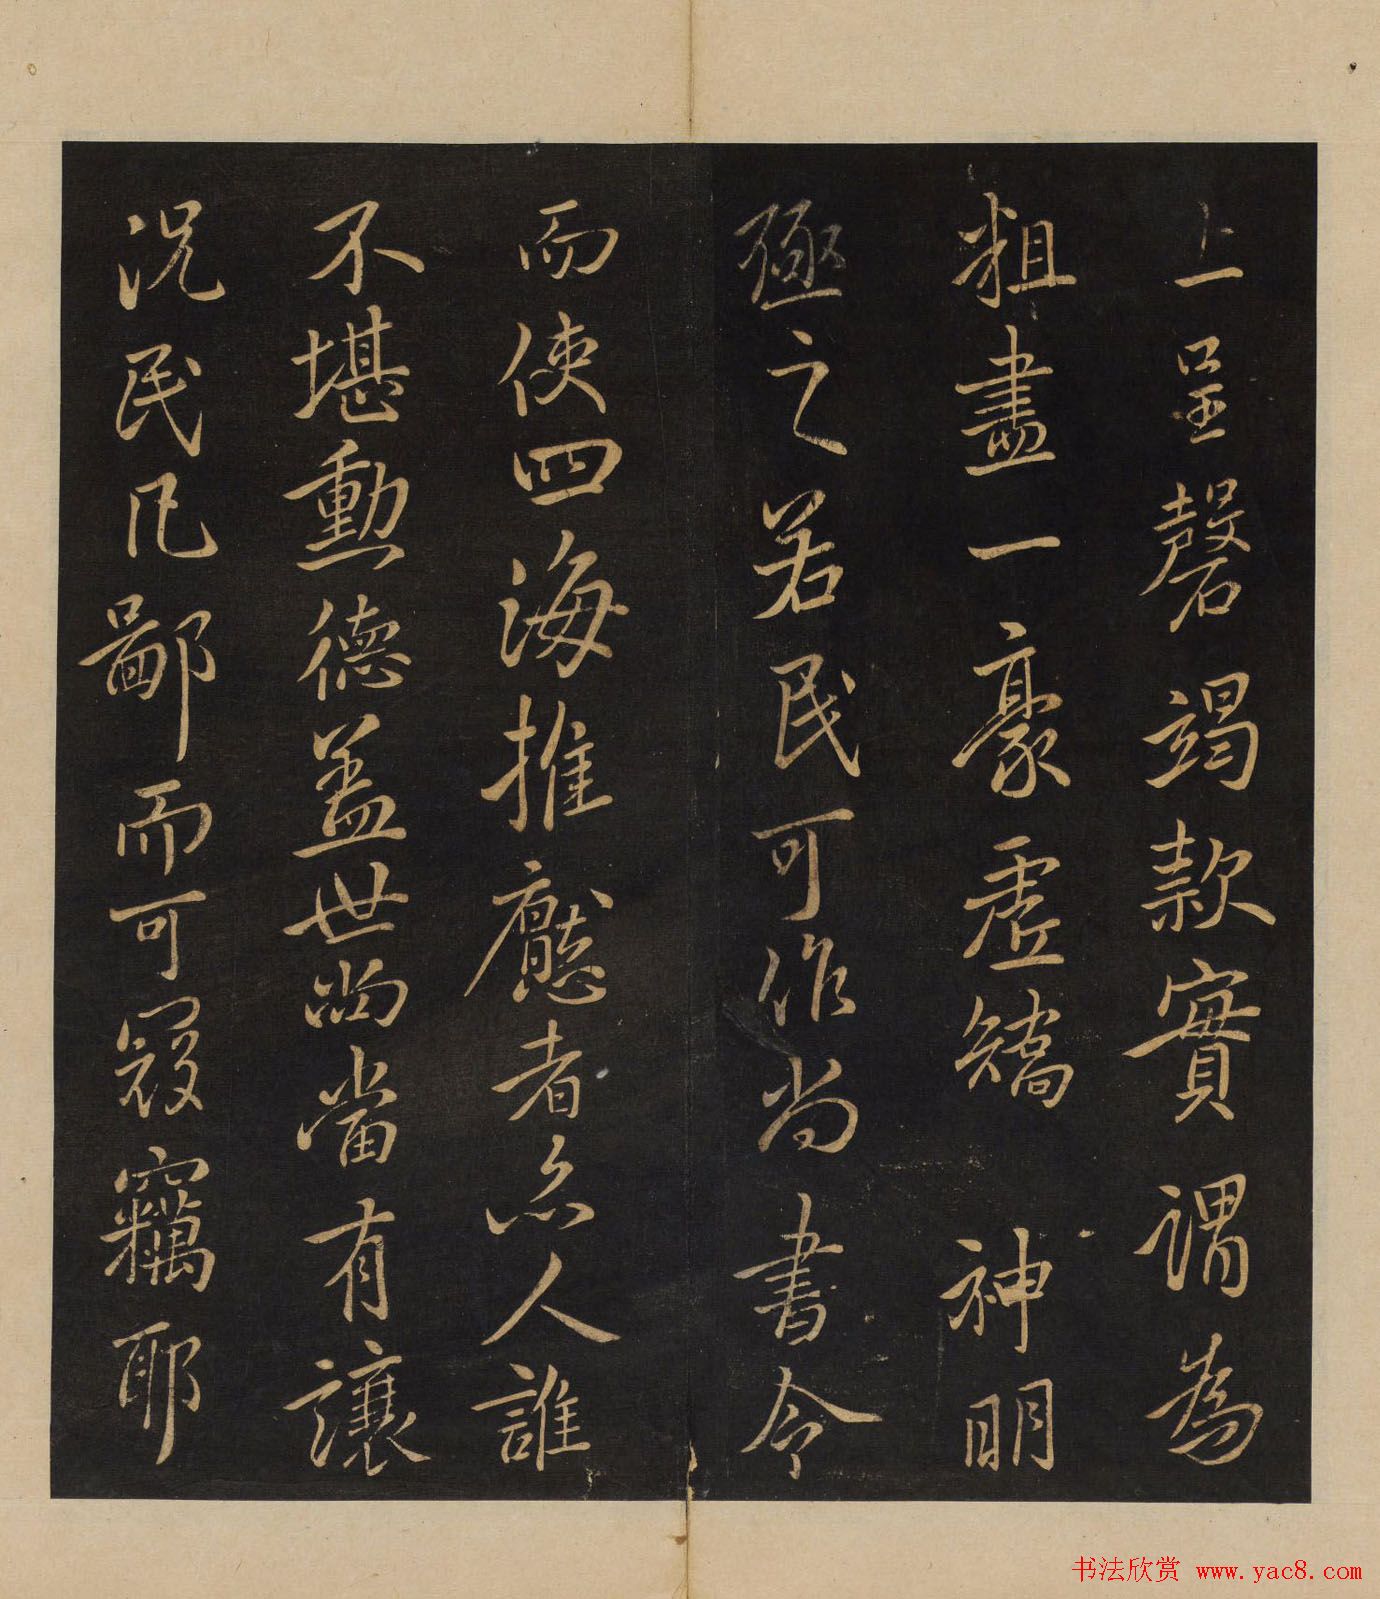 上呈罄竭款實謂為
粗盡一豪虛矯神明
殛之若民可作尚書令
而使四海推懕者亦人誰
不堪勳德盖世尚當有讓
況民凡鄙而可寇竊耶
书法欣赏 www.yac8.com